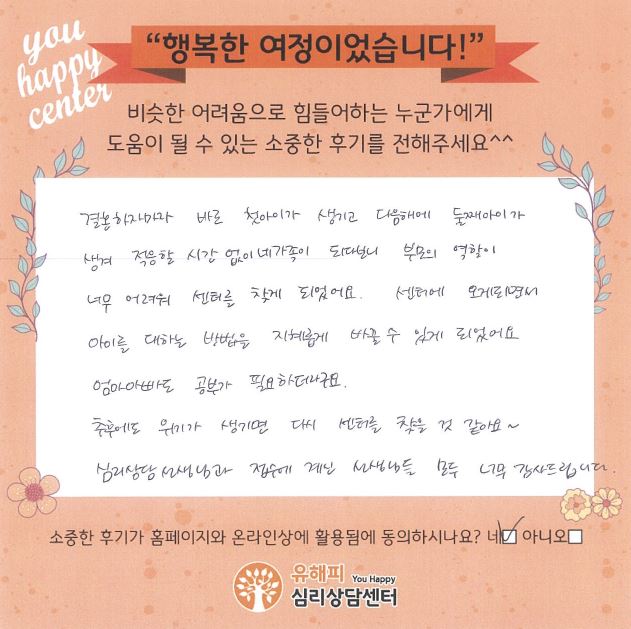 you
happy
center
“행복한 여정이었습니다!”
비슷한 어려움으로 힘들어하는 누군가에게
도움이 될 수 있는 소중한 후기를 전해주세요^^
결혼하자마자 바로 첫아이가 생기고 다음해에 둘째아이가
생겨 적응할 시간 없이 네가족이 되다보니 부모의 역할이
너무 어려워 센터를 찾게 되었어요. 센터에 오게되면서
아이를 대하는 방법을 지혜롭게 바꿀 수 있게 되었어요
엄마아빠도 공부가 필요하더라구요.
추후에도 위기가 생기면 다시 센터를 찾을 것 같아요~
심리상담 선생님과 접수에 계신 선생님들 모두 너무 감사드립니다.
소중한 후기가 홈페이지와 온라인상에 활용됨에 동의하시나요? 네☑ 아니오□
유해피 You Happy
심리상담센터